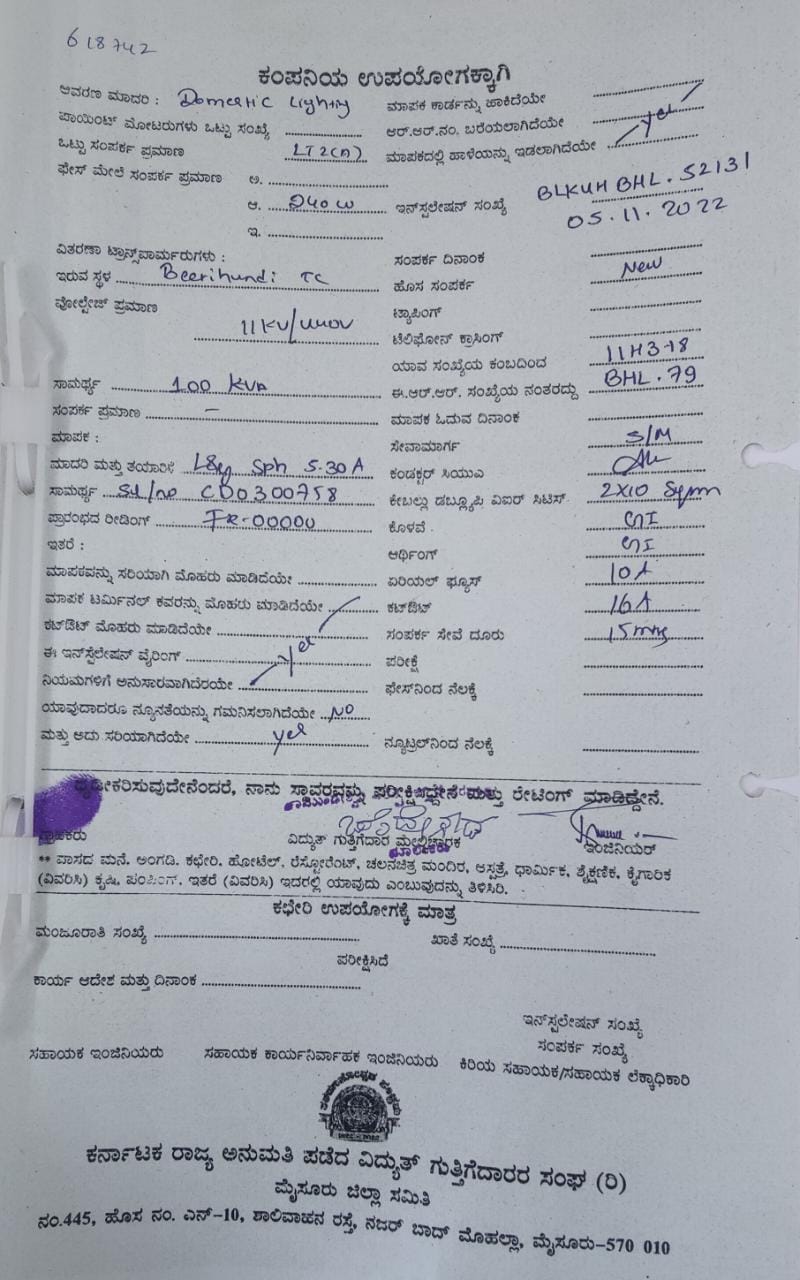 618742
ಕಂಪನಿಯ ಉಪಯೋಗಕ್ಕಾಗಿ
ಆವರಣ ಮಾದರಿ : Domestic Lighting ಮಾಪಕ ಕಾರ್ಡನ್ನು ಹಾಕಿದೆಯೇ
ಪಾಯಿಂಟ್ ಮೋಟರುಗಳು ಒಟ್ಟು ಸಂಖ್ಯೆ ಆರ್.ಆರ್.ನಂ. ಬರೆಯಲಾಗಿದೆಯೇ
ಒಟ್ಟು ಸಂಪರ್ಕ ಪ್ರಮಾಣ LT2(A) ಮಾಪಕದಲ್ಲಿ ಹಾಳೆಯನ್ನು ಇಡಲಾಗಿದೆಯೇ yes
ಫೇಸ್ ಮೇಲೆ ಸಂಪರ್ಕ ಪ್ರಮಾಣ ಅ.
ಆ. 240 W ಇನ್‌ಸ್ಟಲೇಷನ್ ಸಂಖ್ಯೆ BLKUH BHL. 52131
ಇ. 05.11.2022
ವಿತರಣಾ ಟ್ರಾನ್ಸ್‌ಪಾರ್ಮರುಗಳು : ಸಂಪರ್ಕ ದಿನಾಂಕ
ಇರುವ ಸ್ಥಳ Beerihundi TC ಹೊಸ ಸಂಪರ್ಕ New
ವೋಲ್ಟೇಜ್ ಪ್ರಮಾಣ ಟ್ಯಾಪಿಂಗ್
11KV/440V ಟೆಲಿಫೋನ್ ಕ್ರಾಸಿಂಗ್
ಯಾವ ಸಂಖ್ಯೆಯ ಕಂಬದಿಂದ 11H378
ಸಾಮರ್ಥ್ಯ 100 KVA ಈ.ಆರ್.ಆರ್. ಸಂಖ್ಯೆಯ ನಂತರದ್ದು BHL.79
ಸಂಪರ್ಕ ಪ್ರಮಾಣ – ಮಾಪಕ ಓದುವ ದಿನಾಂಕ
ಮಾಪಕ : ಸೇವಾಮಾರ್ಗ S/M
ಮಾದರಿ ಮತ್ತು ತಯಾರಿಕೆ L&G Sph 5-30A ಕಂಡಕ್ಟರ್ ಸಿಯುಎ
ಸಾಮರ್ಥ್ಯ Sl/no CD0300758 ಕೇಬಲ್ಲು ಡಬ್ಲ್ಯೂಪಿ ವಿಐರ್ ಸಿಟಿಸ್ 2X10 Sqmm
ಪ್ರಾರಂಭದ ರೀಡಿಂಗ್ FR-00000 ಕೊಳವೆ GI
ಇತರೆ : ಆರ್ಥಿಂಗ್ GI
ಮಾಪಕವನ್ನು ಸರಿಯಾಗಿ ಮೊಹರು ಮಾಡಿದೆಯೇ ಏರಿಯಲ್ ಫ್ಯೂಸ್ 10A
ಮಾಪಕ ಟರ್ಮಿನಲ್ ಕವರನ್ನು ಮೊಹರು ಮಾಡಿದೆಯೇ ಕಟ್‌ಔಟ್ 16A
ಕಟ್‌ಔಟ್ ಮೊಹರು ಮಾಡಿದೆಯೇ ಸಂಪರ್ಕ ಸೇವೆ ದೂರು 15mtrs
ಈ ಇನ್‌ಸ್ಟಲೇಷನ್ ವೈರಿಂಗ್ yes ಪರೀಕ್ಷೆ
ನಿಯಮಗಳಿಗೆ ಅನುಸಾರವಾಗಿದೆರಯೇ ಫೇಸ್‌ನಿಂದ ನೆಲಕ್ಕೆ
ಯಾವುದಾದರೂ ನ್ಯೂನತೆಯನ್ನು ಗಮನಿಸಲಾಗಿದೆಯೇ NO
ಮತ್ತು ಅದು ಸರಿಯಾಗಿದೆಯೇ yes ನ್ಯೂಟ್ರಲ್‌ನಿಂದ ನೆಲಕ್ಕೆ
ದೃಢೀಕರಿಸುವುದೇನೆಂದರೆ, ನಾನು ಸ್ಥಾವರವನ್ನು ಪರೀಕ್ಷಿಸಿದ್ದೇನೆ ಮತ್ತು ರೇಟಿಂಗ್ ಮಾಡಿದ್ದೇನೆ.
ಗ್ರಾಹಕರು ವಿದ್ಯುತ್ ಗುತ್ತಿಗೆದಾರ ಮೇಲ್ವಿಚಾರಕ ಇಂಜಿನಿಯರ್
** ವಾಸದ ಮನೆ, ಅಂಗಡಿ, ಕಛೇರಿ, ಹೋಟೆಲ್, ರೆಸ್ಟೋರೆಂಟ್, ಚಲನಚಿತ್ರ ಮಂದಿರ, ಅಸ್ಪತ್ರೆ, ಧಾರ್ಮಿಕ, ಶೈಕ್ಷಣಿಕ, ಕೈಗಾರಿಕ
(ವಿವರಿಸಿ) ಕೃಷಿ, ಪಂಪಿಂಗ್, ಇತರೆ (ವಿವರಿಸಿ) ಇದರಲ್ಲಿ ಯಾವುದು ಎಂಬುವುದನ್ನು ತಿಳಿಸಿರಿ.
ಕಛೇರಿ ಉಪಯೋಗಕ್ಕೆ ಮಾತ್ರ
ಮಂಜೂರಾತಿ ಸಂಖ್ಯೆ ಖಾತೆ ಸಂಖ್ಯೆ
ಪರೀಕ್ಷಿಸಿದೆ
ಕಾರ್ಯ ಆದೇಶ ಮತ್ತು ದಿನಾಂಕ
ಇನ್‌ಸ್ಟಲೇಷನ್ ಸಂಖ್ಯೆ
ಸಂಪರ್ಕ ಸಂಖ್ಯೆ
ಸಹಾಯಕ ಇಂಜಿನಿಯರು ಸಹಾಯಕ ಕಾರ್ಯನಿರ್ವಾಹಕ ಇಂಜಿನಿಯರು ಕಿರಿಯ ಸಹಾಯಕ/ಸಹಾಯಕ ಲೆಕ್ಕಾಧಿಕಾರಿ
ಕರ್ನಾಟಕ ರಾಜ್ಯ ಅನುಮತಿ ಪಡೆದ ವಿದ್ಯುತ್ ಗುತ್ತಿಗೆದಾರರ ಸಂಘ (ರಿ)
ಮೈಸೂರು ಜಿಲ್ಲಾ ಸಮಿತಿ
ನಂ.445, ಹೊಸ ನಂ. ಎನ್-10, ಶಾಲಿವಾಹನ ರಸ್ತೆ, ನಜರ್ ಬಾದ್ ಮೊಹಲ್ಲಾ, ಮೈಸೂರು-570 010